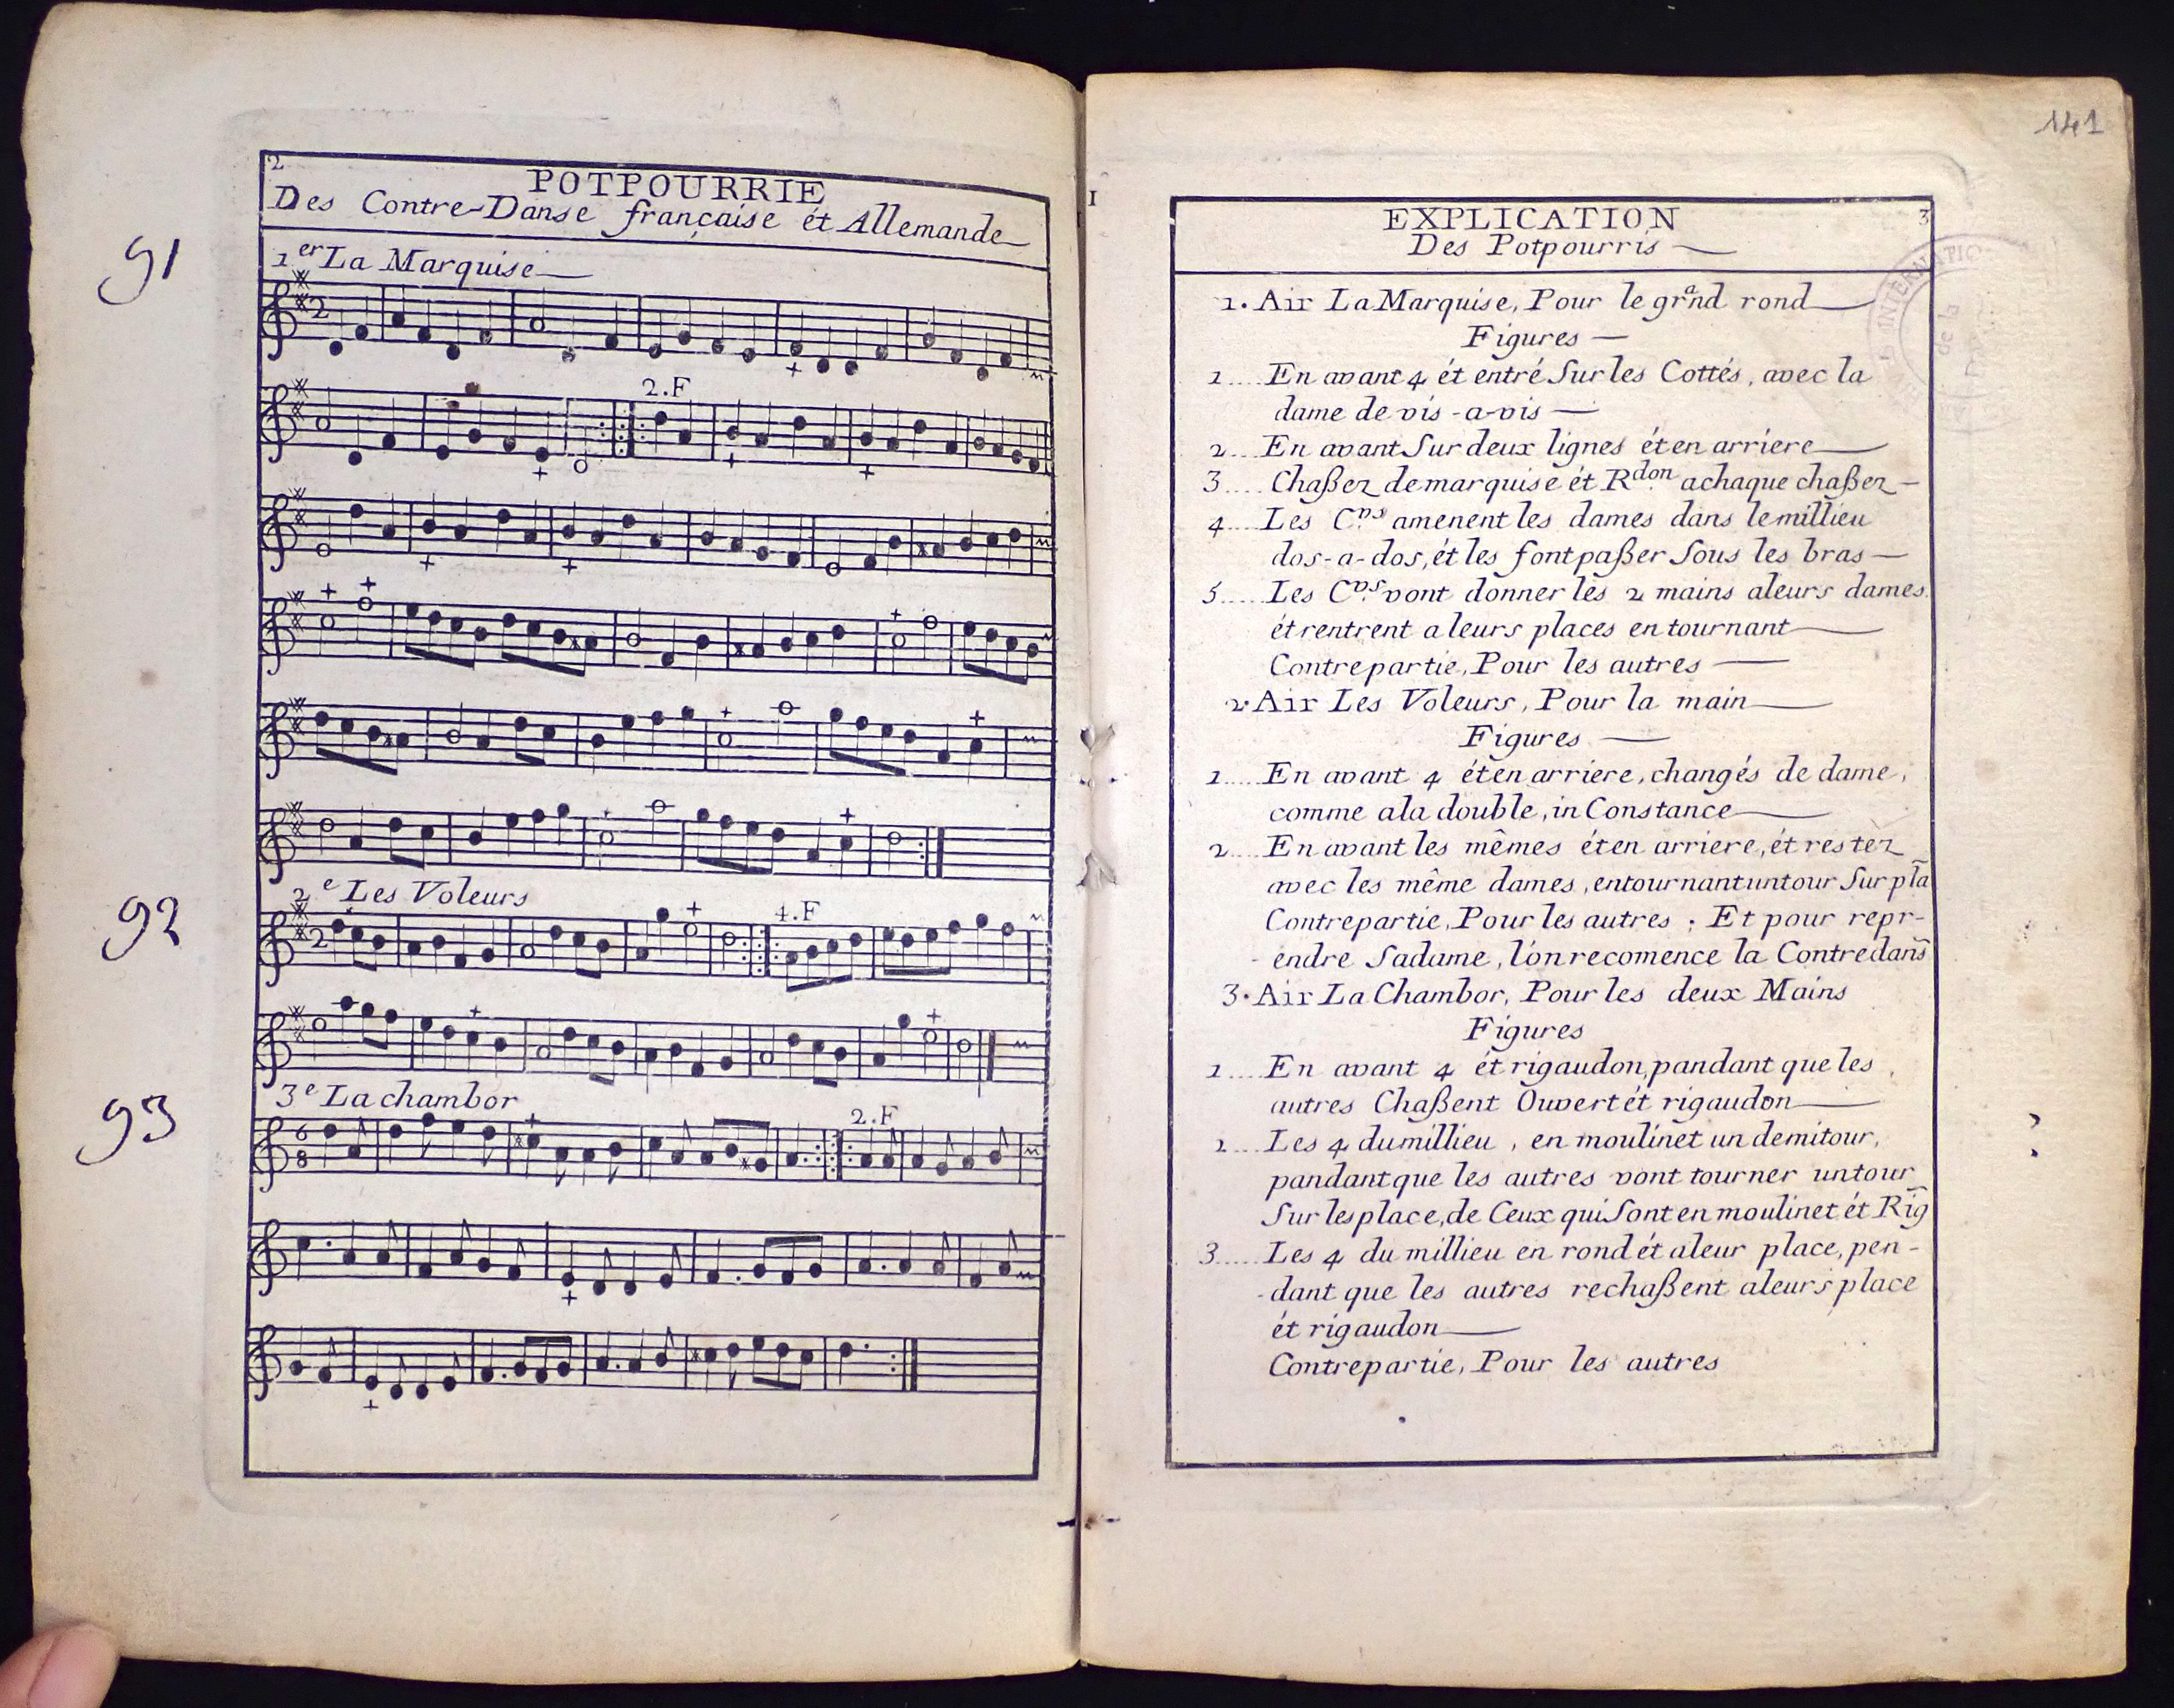 91
92
93
2
POTPOURRIE
Des Contre-Danse française ét Allemande
1er La Marquise
2
2.F
2e Les Voleurs
2
4.F
3e La chambor
6
8
2.F
1
141
EXPLICATION
3
Des Potpourris
1. Air La Marquise, Pour le grand rond
Figures
1 .... En avant 4 ét entré Sur les Cottés, avec la
dame de vis-a-vis
2 ... En avant Sur deux lignes ét en arriere
3 .... Chaßez de marquise ét Rdon achaque chaßez
4 ... Les Cers amenent les dames dans le millieu
dos-a-dos, ét les font paßer Sous les bras
5 .... Les Cers vont donner les 2 mains aleurs dames
ét rentrent a leurs places en tournant
Contrepartie, Pour les autres
2. Air Les Voleurs, Pour la main
Figures
1 .... En avant 4 ét en arriere, changés de dame,
comme ala double, in Constance
2 ... En avant les mêmes ét en arriere, ét restez
avec les même dames, entournant un tour Sur pla
Contrepartie, Pour les autres ; Et pour repr-
endre Sadame, l'on recomence la Contredans
3. Air La Chambor, Pour les deux Mains
Figures
1 .... En avant 4 ét rigaudon, pandant que les
autres Chaßent Ouvert ét rigaudon
2 ... Les 4 du millieu, en moulinet un demi tour,
pandant que les autres vont tourner un tour
Sur les place, de Ceux qui Sont en moulinet ét Rig
3 .... Les 4 du millieu en rond ét aleur place, pen-
-dant que les autres rechaßent aleurs place
ét rigaudon
Contrepartie, Pour les autres